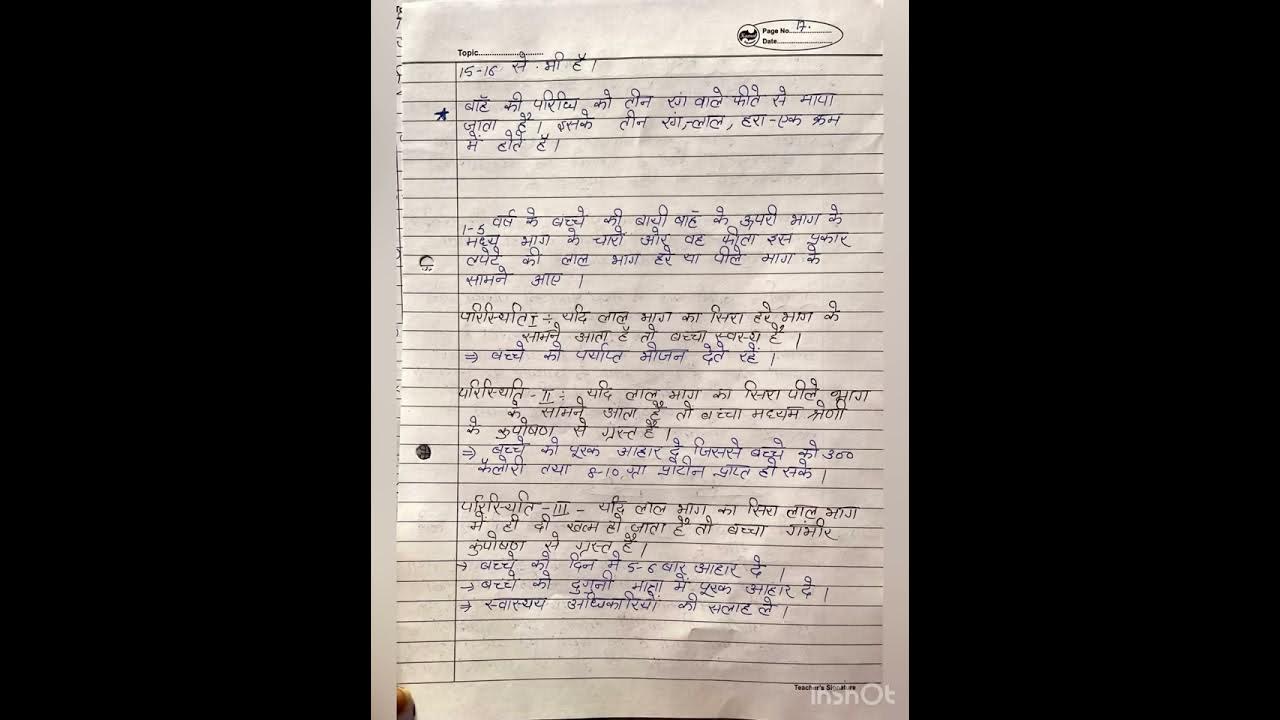 Page No. 17.
Date
Topic
15-16 से भी है।
बाहॅ की परिधि को तीन रंग वाले फीते से मापा
जाता है। इसके तीन रंग,-लाल, हरा-एक क्रम
में होते है।
1-5 वर्ष के बच्चे की बायी बाहॅ के ऊपरी भाग के
मध्य भाग के चारों ओर वह फीता इस प्रकार
लपेटे की लाल भाग हरे या पीले भाग के
सामने आए ।
परिस्थिति I :- यदि लाल भाग का सिरा हरे भाग के
सामने आता है तो बच्चा स्वस्थ है ।
⇒ बच्चे को पर्याप्त भोजन देते रहें ।
परिस्थिति - II :- यदि लाल भाग का सिरा पीले भाग
के सामने आता है तो बच्चा मध्यम श्रेणी
के कुपोषण से ग्रस्त है ।
⇒ बच्चे को पूरक आहार दे जिससे बच्चे को 300
कैलोरी तथा 8-10 ग्रा प्रोटीन प्राप्त हो सके ।
परिस्थिति - III - यदि लाल भाग का सिरा लाल भाग
में ही दी खत्म हो जाता है तो बच्चा गंभीर
कुपोषण से ग्रस्त है ।
→ बच्चे को दिन में 5-6 बार आहार दे ।
→ बच्चे को दुगुनी मात्रा में पूरक आहार दे ।
⇒ स्वास्थय अधिकारियों की सलाह ले ।
Teacher's Signature
InShOt